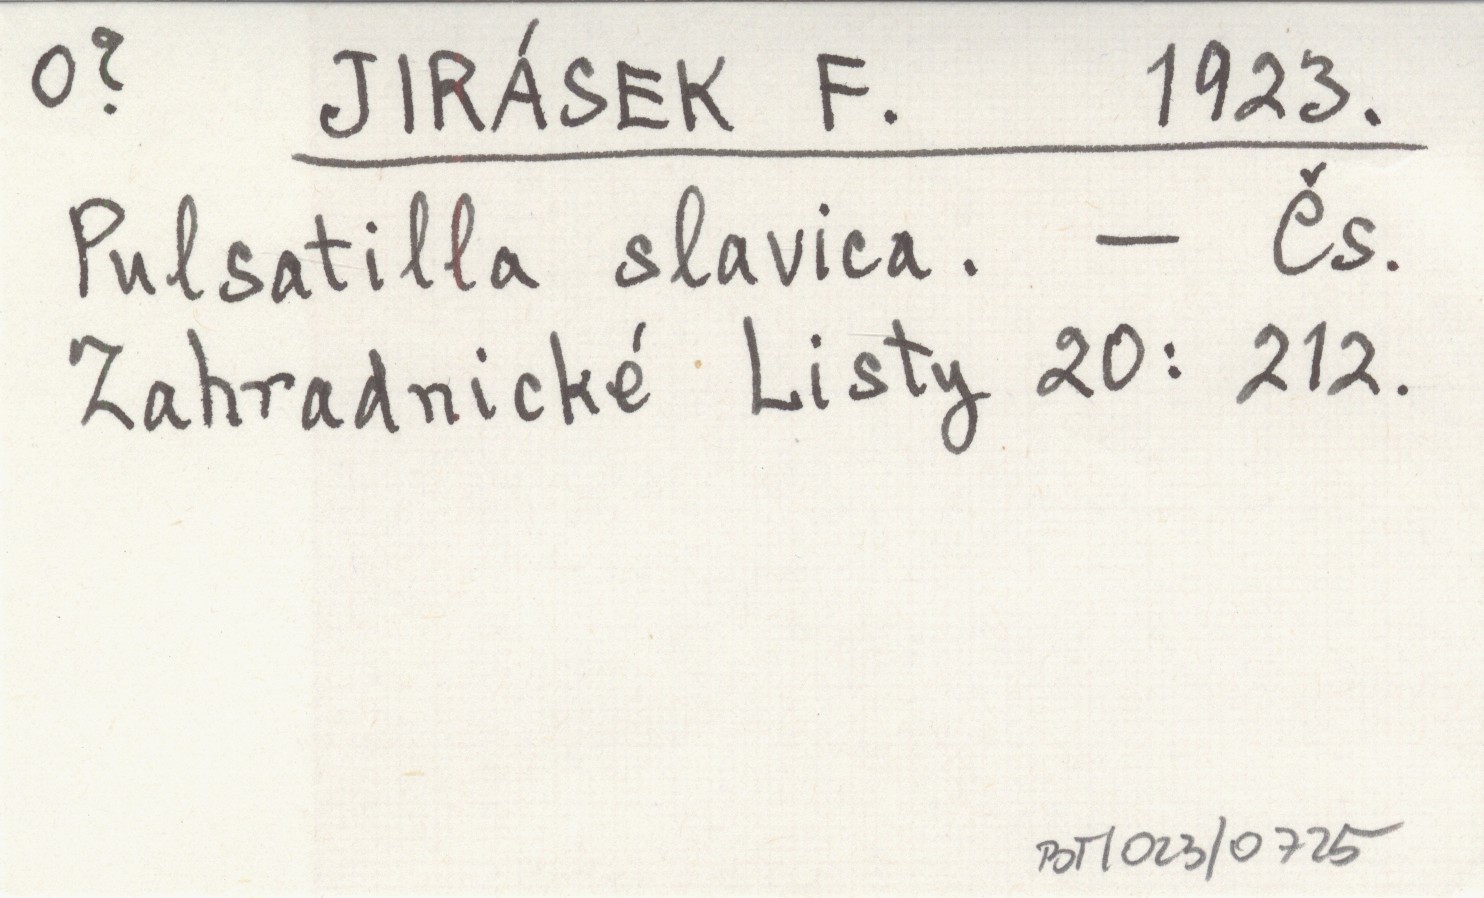 o? JIRÁSEK F. 1923.
Pulsatilla slavica. — Čs.
Zahradnické Listy 20: 212.
POT/023/0725